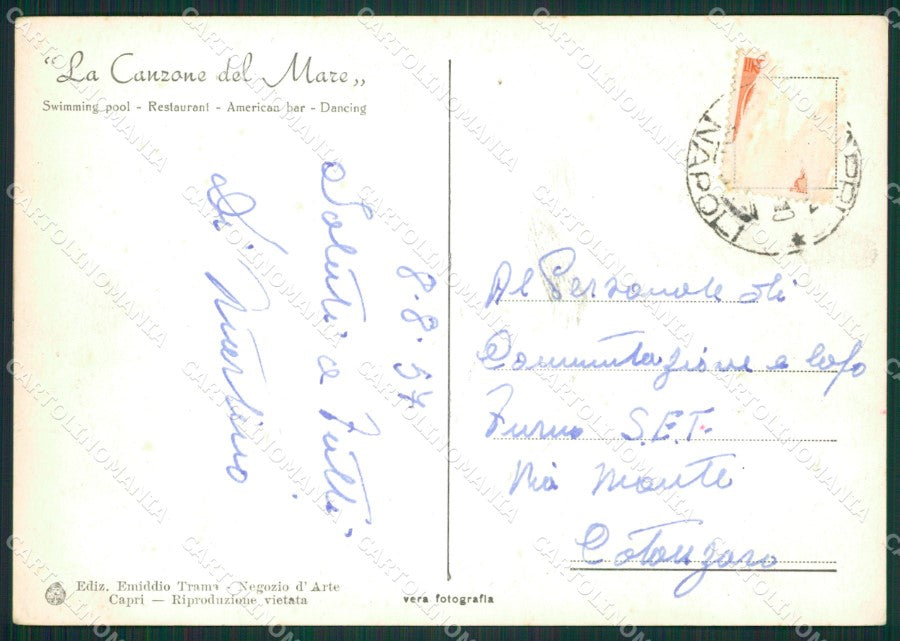 “La Canzone del Mare„
Swimming pool - Restaurant - American bar - Dancing
8.8.54
Saluti a Tutti
Di
Al Personale di
Commutazione e Capo
Turno S.E.T.
Via Monte
Catanzaro
NAPOLI
Ediz. Emiddio Trama - Negozio d'Arte
Capri — Riproduzione vietata
vera fotografia
CARTOLINOMANIA